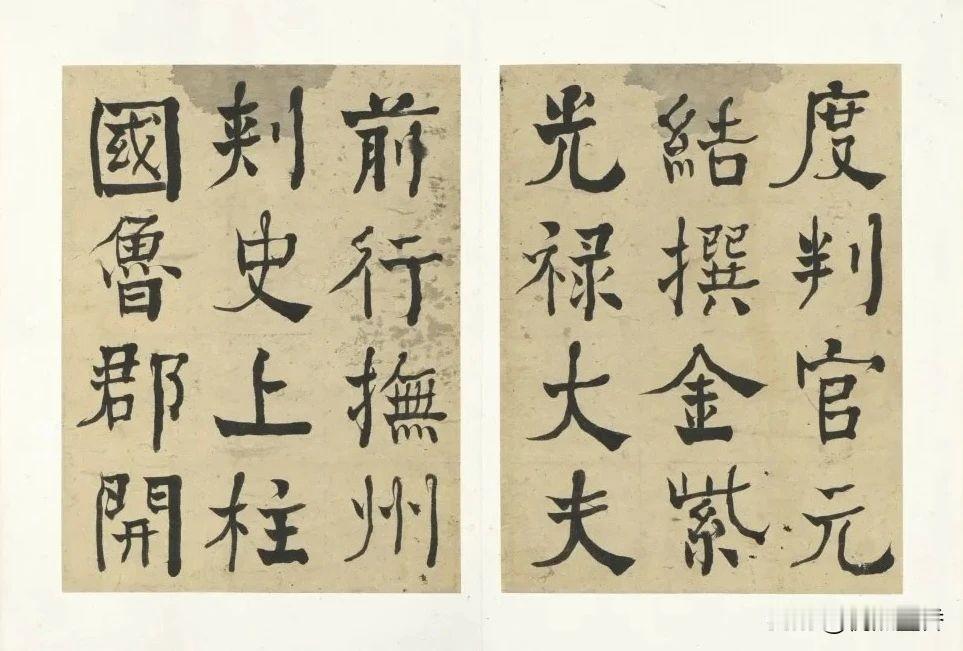 度判官元
結撰金紫
光禄大夫
前行撫州
刺史上柱
國魯郡開